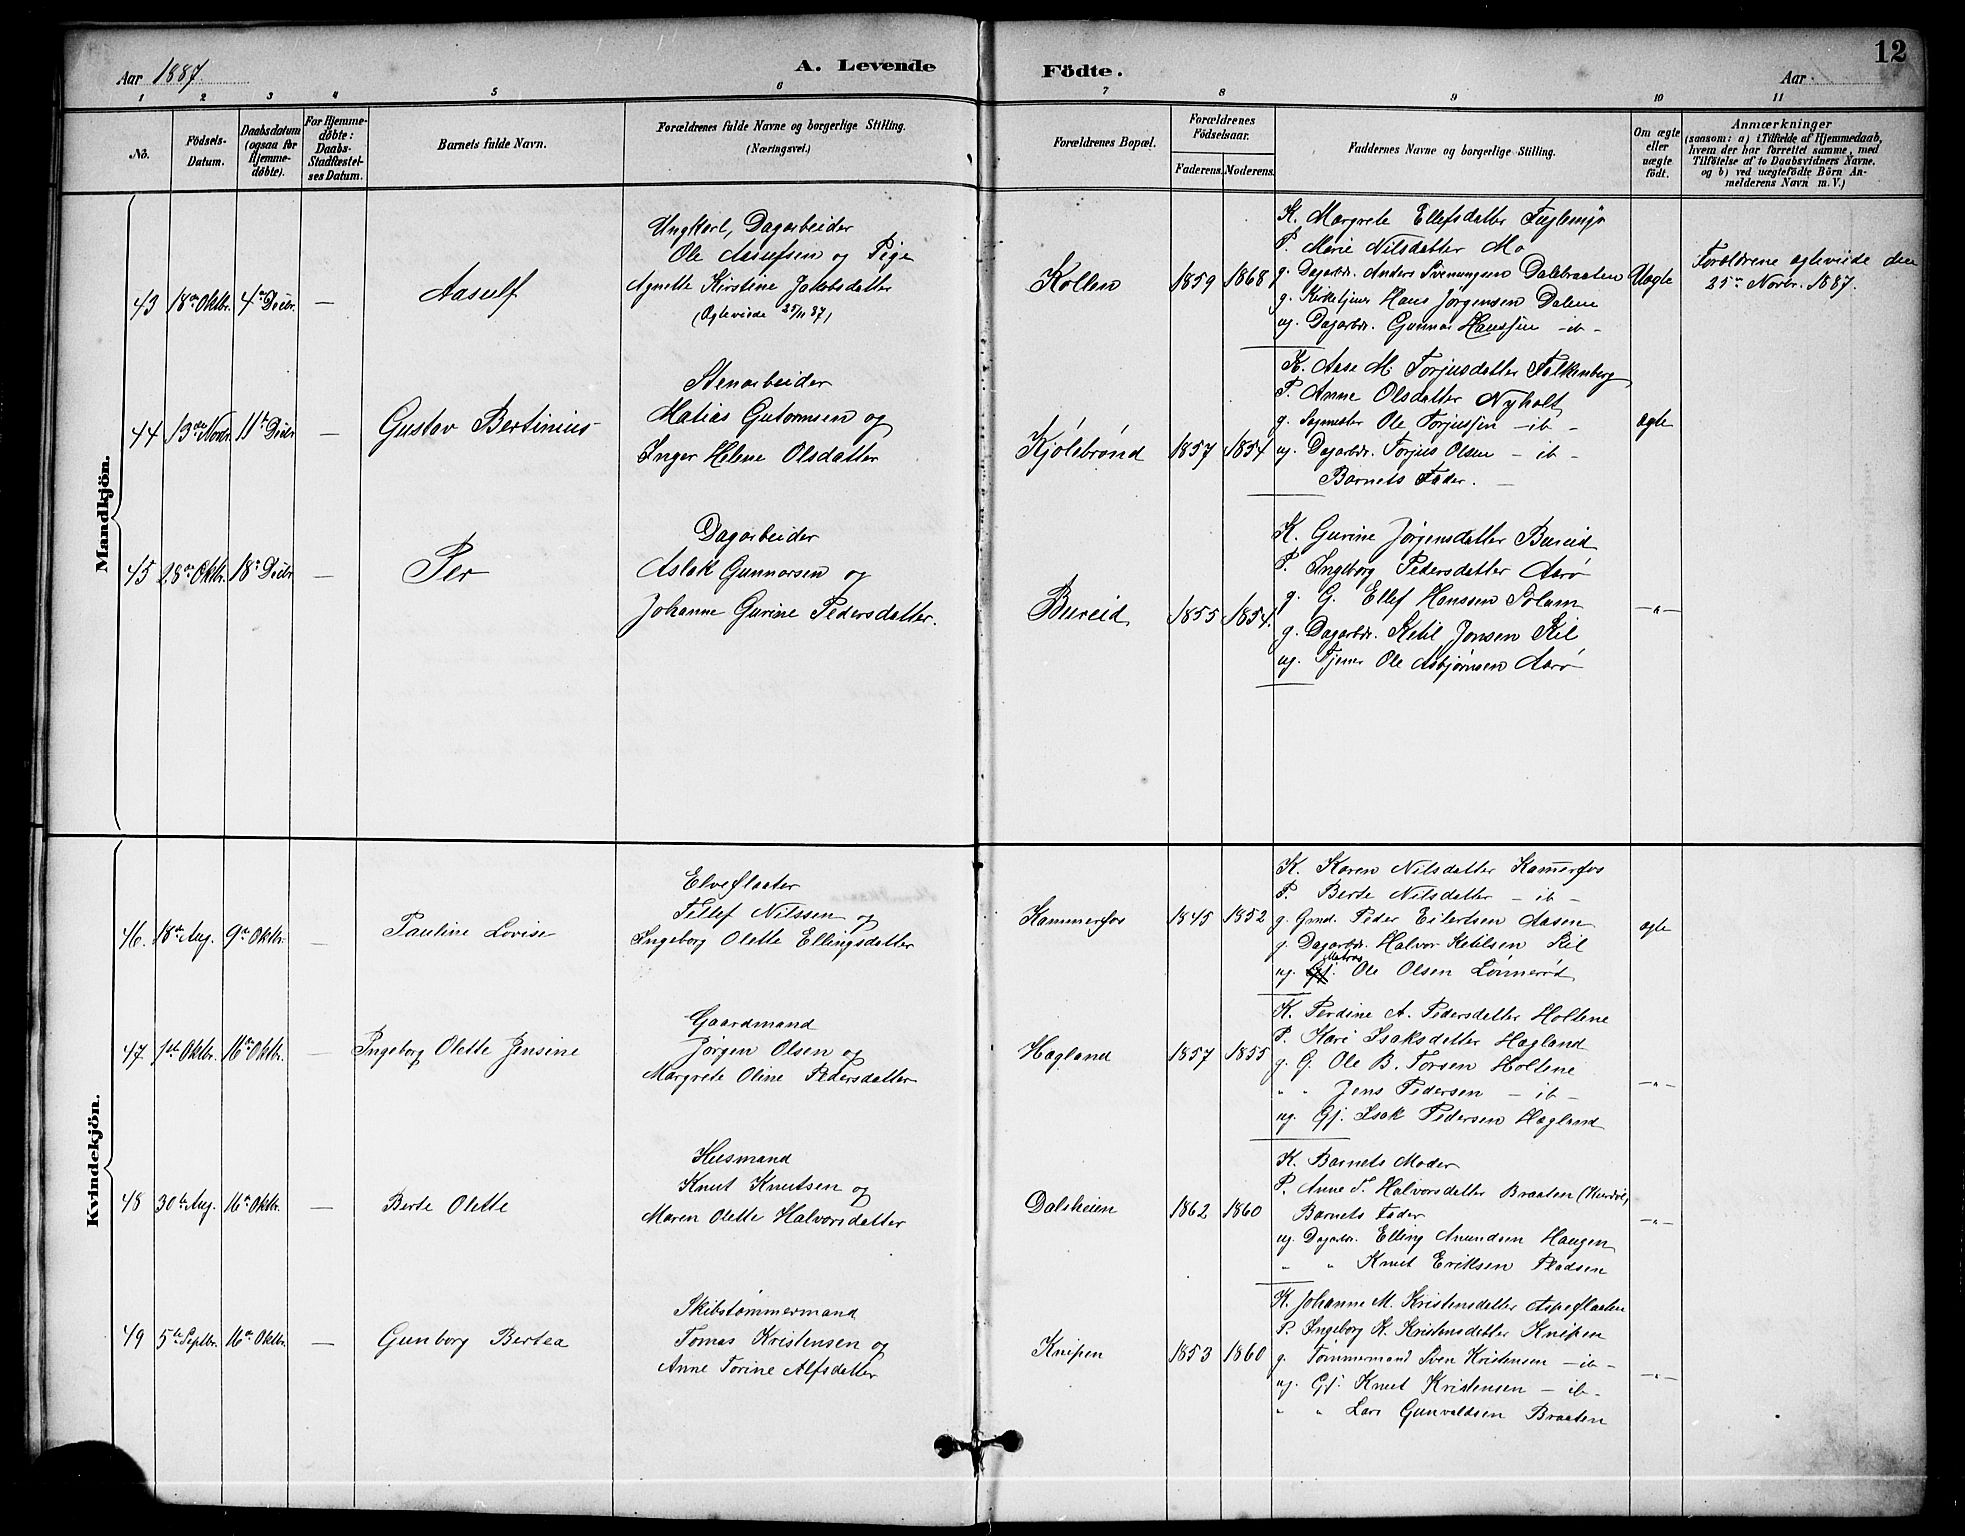 Aar 1887.
A. Levende Födte.
Aar
12
1 2 3 4 5 6 7 8 9 10 11
No.
Födsels-Datum.
Daabsdatum (ogsaa for Hjemme-døbte).
For Hjemme-døbte: Daabs-Stadfæstel-ses Datum.
Barnets fulde Navn.
Forældrenes fulde Navne og borgerlige Stilling.
(Næringsvei.)
Forældrenes Bopæl.
Forældrenes Födselsaar.
Faderens. Moderens.
Faddernes Navne og borgerlige Stilling.
Om ægte eller uægte födt.
Anmærkninger
(saasom: a) i Tilfælde af Hjemmedaab,
hvem der har forrettet samme, med
Tilföielse af to Daabsvidners Navne.
og b) ved uægtefödte Börn An-
melderens Navn m. V.)
Mandkjön.
43 18de Oktbr. 4de Decbr. — Aasulf
Ungkarl, Dagarbeider
Ole Aasulfsen og Pige
Agnette Kirstine Jakobsdatter
(Ægteviede 25/11 87)
Kollen 1859 1868
K. Margrete Ellefsdatter Fuglemyr
P. Marie Nilsdatter Mo
g. Dagarbr. Anders Svenungsen Dalebraaten
g. Kirketjener Hans Jørgensen Dalene
ug. Dagarbr. Gunnar Hanssen — ib —
Uægte
Forældrene ægteviede den
25de Novbr. 1887.
44 13de Novbr. 11te Decbr — Gustav Bertinius
Stenarbeider
Matias Gutormsen og
Inger Helene Olsdatter
Kjølebrønd 1857 1854
K. Aase M. Torjusdatter Falkenberg
P. Anne Olsdatter Nyholt
g. Sagmester Ole Torjussen — ib —
ug. Dagarbr. Torjus Olsen — ib —
Barnets Fader. —
ægte
45 28de Oktbr. 18de Decbr — Per
Dagarbeider
Aslak Gunnarsen og
Johanne Gurine Pedersdatter.
Bureid 1855 1854.
K. Gurine Jørgensdatter Bureid
P. Ingeborg Pedersdatter Aarø
g. G. Ellef Hanssen Solum
g. Dagarbr. Ketil Jonsen Kil
ug. Tjener Ole Asbjørnsen Aarø
— " —
Kvindekjön.
46. 18de Aug. 9de Oktbr. — Pauline Lovise
Elveflaater
Tellef Nilssen og
Ingeborg Olette Ellingsdatter
Kammerfos 1845 1852
K. Karen Nilsdatter Kammerfos
P. Berte Nilsdatter — ib —
g. Grmd. Peder Eilertsen Aasen
g. Dagarbr. Halvor Ketilsen Kil
ug. Matros Ole Olsen Lønnerød
ægte
47 1ste Oktbr. 16de Oktbr. — Ingeborg Olette Jensine
Gaardmand
Jørgen Olsen og
Margrete Oline Pedersdatter
Hagland 1857 1855
K. Perdine A. Pedersdatter Holtene
P. Kari Isaksdatter Hagland
g. G. Ole B. Torsen Holtene
" " Jens Pedersen — ib —
ug. Gj. Isak Pedersen Hagland
— " —
48 30te Aug. 16de Oktbr. — Berte Olette
Husmand
Knut Knutsen og
Maren Olette Halvorsdatter
Dalsheien 1862 1860
K. Barnets Moder
P. Anne T. Halvorsdatter Braaten
Barnets Fader
ug. Dagarbr. Elling Amundsen Haugen
" " Knut Eriksen Pladsen
— " —
49 5te Septbr. 16de Oktbr. — Gunborg Bertea
Skibstømmermand
Tomas Kristensen og
Anne Torine Alfsdatter
Knipen 1853 1860
K. Johanne M. Kristensdatter Aspeflaaten
P. Ingeborg K. Kristensdatter Knipen
g. Tømmermand Sven Kristensen — ib —
ug. Gj. Knut Kristensen — ib —
" " Lars Gunvaldsen Braaten
— " —